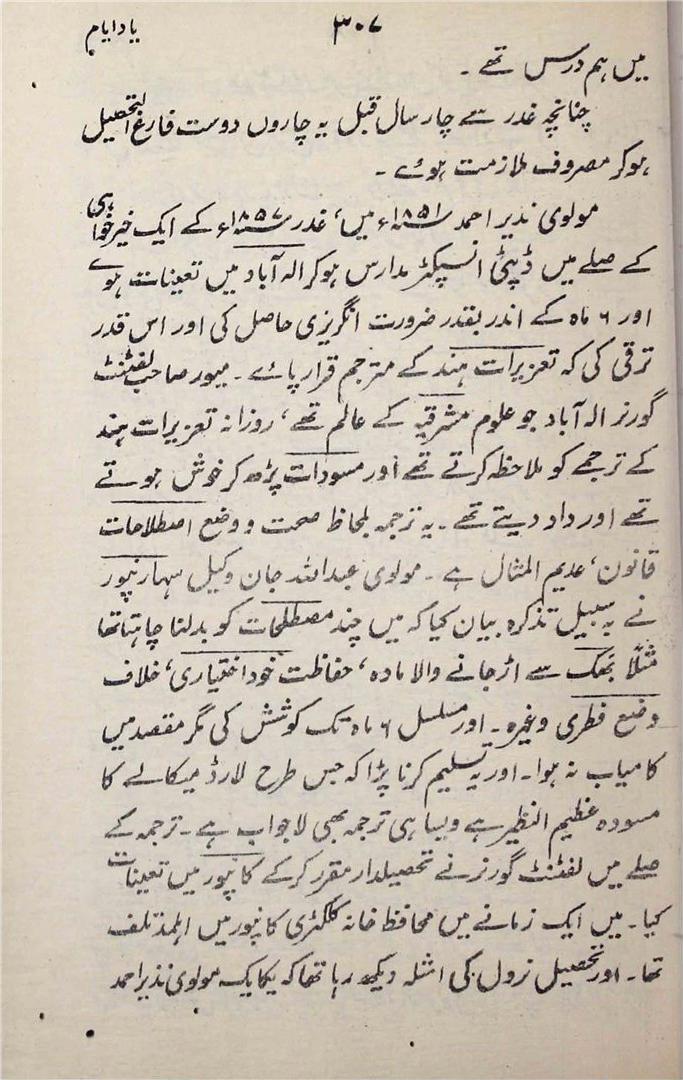 یاد ایام
۳۰۷
میں ہم درس تھے ۔
چنانچہ غدر سے چار سال قبل یہ چاروں دوست فارغ التحصیل
ہوکر مصروف ملازمت ہوئے ۔
مولوی نذیر احمد ۱۸۵۱ء میں، غدر ۱۸۵۷ء کے ایک خیرخواہی
کے صلے میں ڈپٹی انسپکٹر مدارس ہوکر الہ آباد میں تعینات ہوے
اور ۶ ماہ کے اندر بقدر ضرورت انگریزی حاصل کی اور اس قدر
ترقی کی کہ تعزیرات ہند کے مترجم قرار پائے ۔ میور صاحب لفٹنٹ
گورنر الہ آباد جو علوم مشرقیہ کے عالم تھے، روزانہ تعزیرات ہند
کے ترجمے کو ملاحظہ کرتے تھے اور مسودات پڑھ کر خوش ہوتے
تھے اور داد دیتے تھے ۔ یہ ترجمہ بلحاظ صحت و وضع اصطلاحات
قانون، عدیم المثال ہے ۔ مولوی عبداللہ جان وکیل سہارنپور
نے بہ سبیل تذکرہ بیان کیا کہ میں چند مصطلحات کو بدلنا چاہتا تھا
مثلاً بھک سے اڑجانے والا مادہ، حفاظت خود اختیاری، خلاف
وضع فطری وغیرہ ۔ اور مسلسل ۶ ماہ تک کوشش کی مگر مقصد میں
کامیاب نہ ہوا ۔ اور یہ تسلیم کرنا پڑا کہ جس طرح لارڈ میکالے کا
مسودہ عظیم النظیر ہے ویسا ہی ترجمہ بھی لاجواب ہے ۔ ترجمہ کے
صلے میں لفٹنٹ گورنر نے تحصیلدار مقرر کرکے کانپور میں تعینات
کیا ۔ میں ایک زمانے میں محافظ خانہ کلکٹری کانپور میں اہلمد تلف
تھا ۔ اور تحصیل نزول کی امثلہ دیکھ رہا تھا کہ یکایک مولوی نذیر احمد